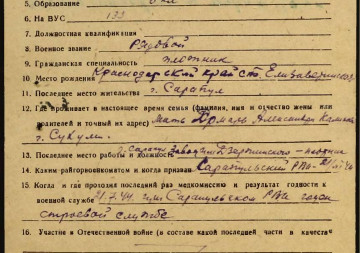 5. Образование
6. На ВУС 133
7. Должностная квалификация
8. Военное звание рядовой
9. Гражданская специальность плотник
10 Место рождения Краснодарский край ст. Елизаветинская
11. Последнее место жительства г. Сарапул
12. Где проживает в настоящее время семья (фамилия, имя и отчество жены или
родителей и точный их адрес) Мать Комарь Александра
г. Сухуми.
13. Последнее место работы и должность г. Сарапул завод им Дзержинского - плотник
14 Каким райгорвоенкоматом и когда призван Сарапульский РВК
15 Когда и где проходил последний раз медкомиссию и результат годности к
военной службе 21.7.44 при Сарапульском РВК годен
строевой службе
16. Участие в Отечественной войне (в составе какой последней части и в качестве